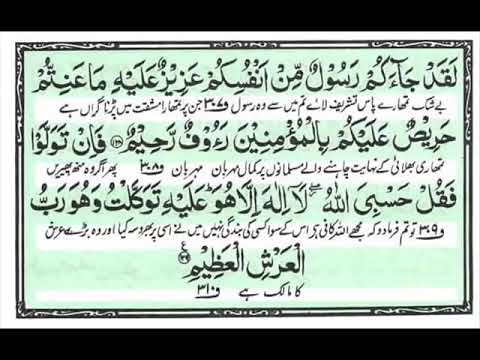 لَقَدْ جَآءَكُمْ رَسُوْلٌ مِّنْ اَنْفُسِكُمْ عَزِيْزٌ عَلَيْهِ مَا عَنِتُّمْ
بے شک تمہارے پاس تشریف لائے تم میں سے وہ رسول ف۳۰۷ جن پر تمہارا مشقت میں پڑنا گراں ہے
حَرِيْصٌ عَلَيْكُمْ بِالْمُؤْمِنِيْنَ رَءُوْفٌ رَّحِيْمٌ ۝۱۲۸ فَاِنْ تَوَلَّوْا
تمہاری بھلائی کے نہایت چاہنے والے مسلمانوں پر کمال مہربان مہربان ف۳۰۸ پھر اگر وہ منھ پھیریں
فَقُلْ حَسْبِيَ اللّٰهُ لَاۤ اِلٰهَ اِلَّا هُوَ عَلَيْهِ تَوَكَّلْتُ وَهُوَ رَبُّ
ف۳۰۹ تو تم فرما دو کہ مجھے اللہ کافی ہے اس کے سوا کسی کی بندگی نہیں میں نے اسی پر بھروسہ کیا اور وہ بڑے عرش
الْعَرْشِ الْعَظِيْمِ ۝۱۲۹
کا مالک ہے ف۳۱۰